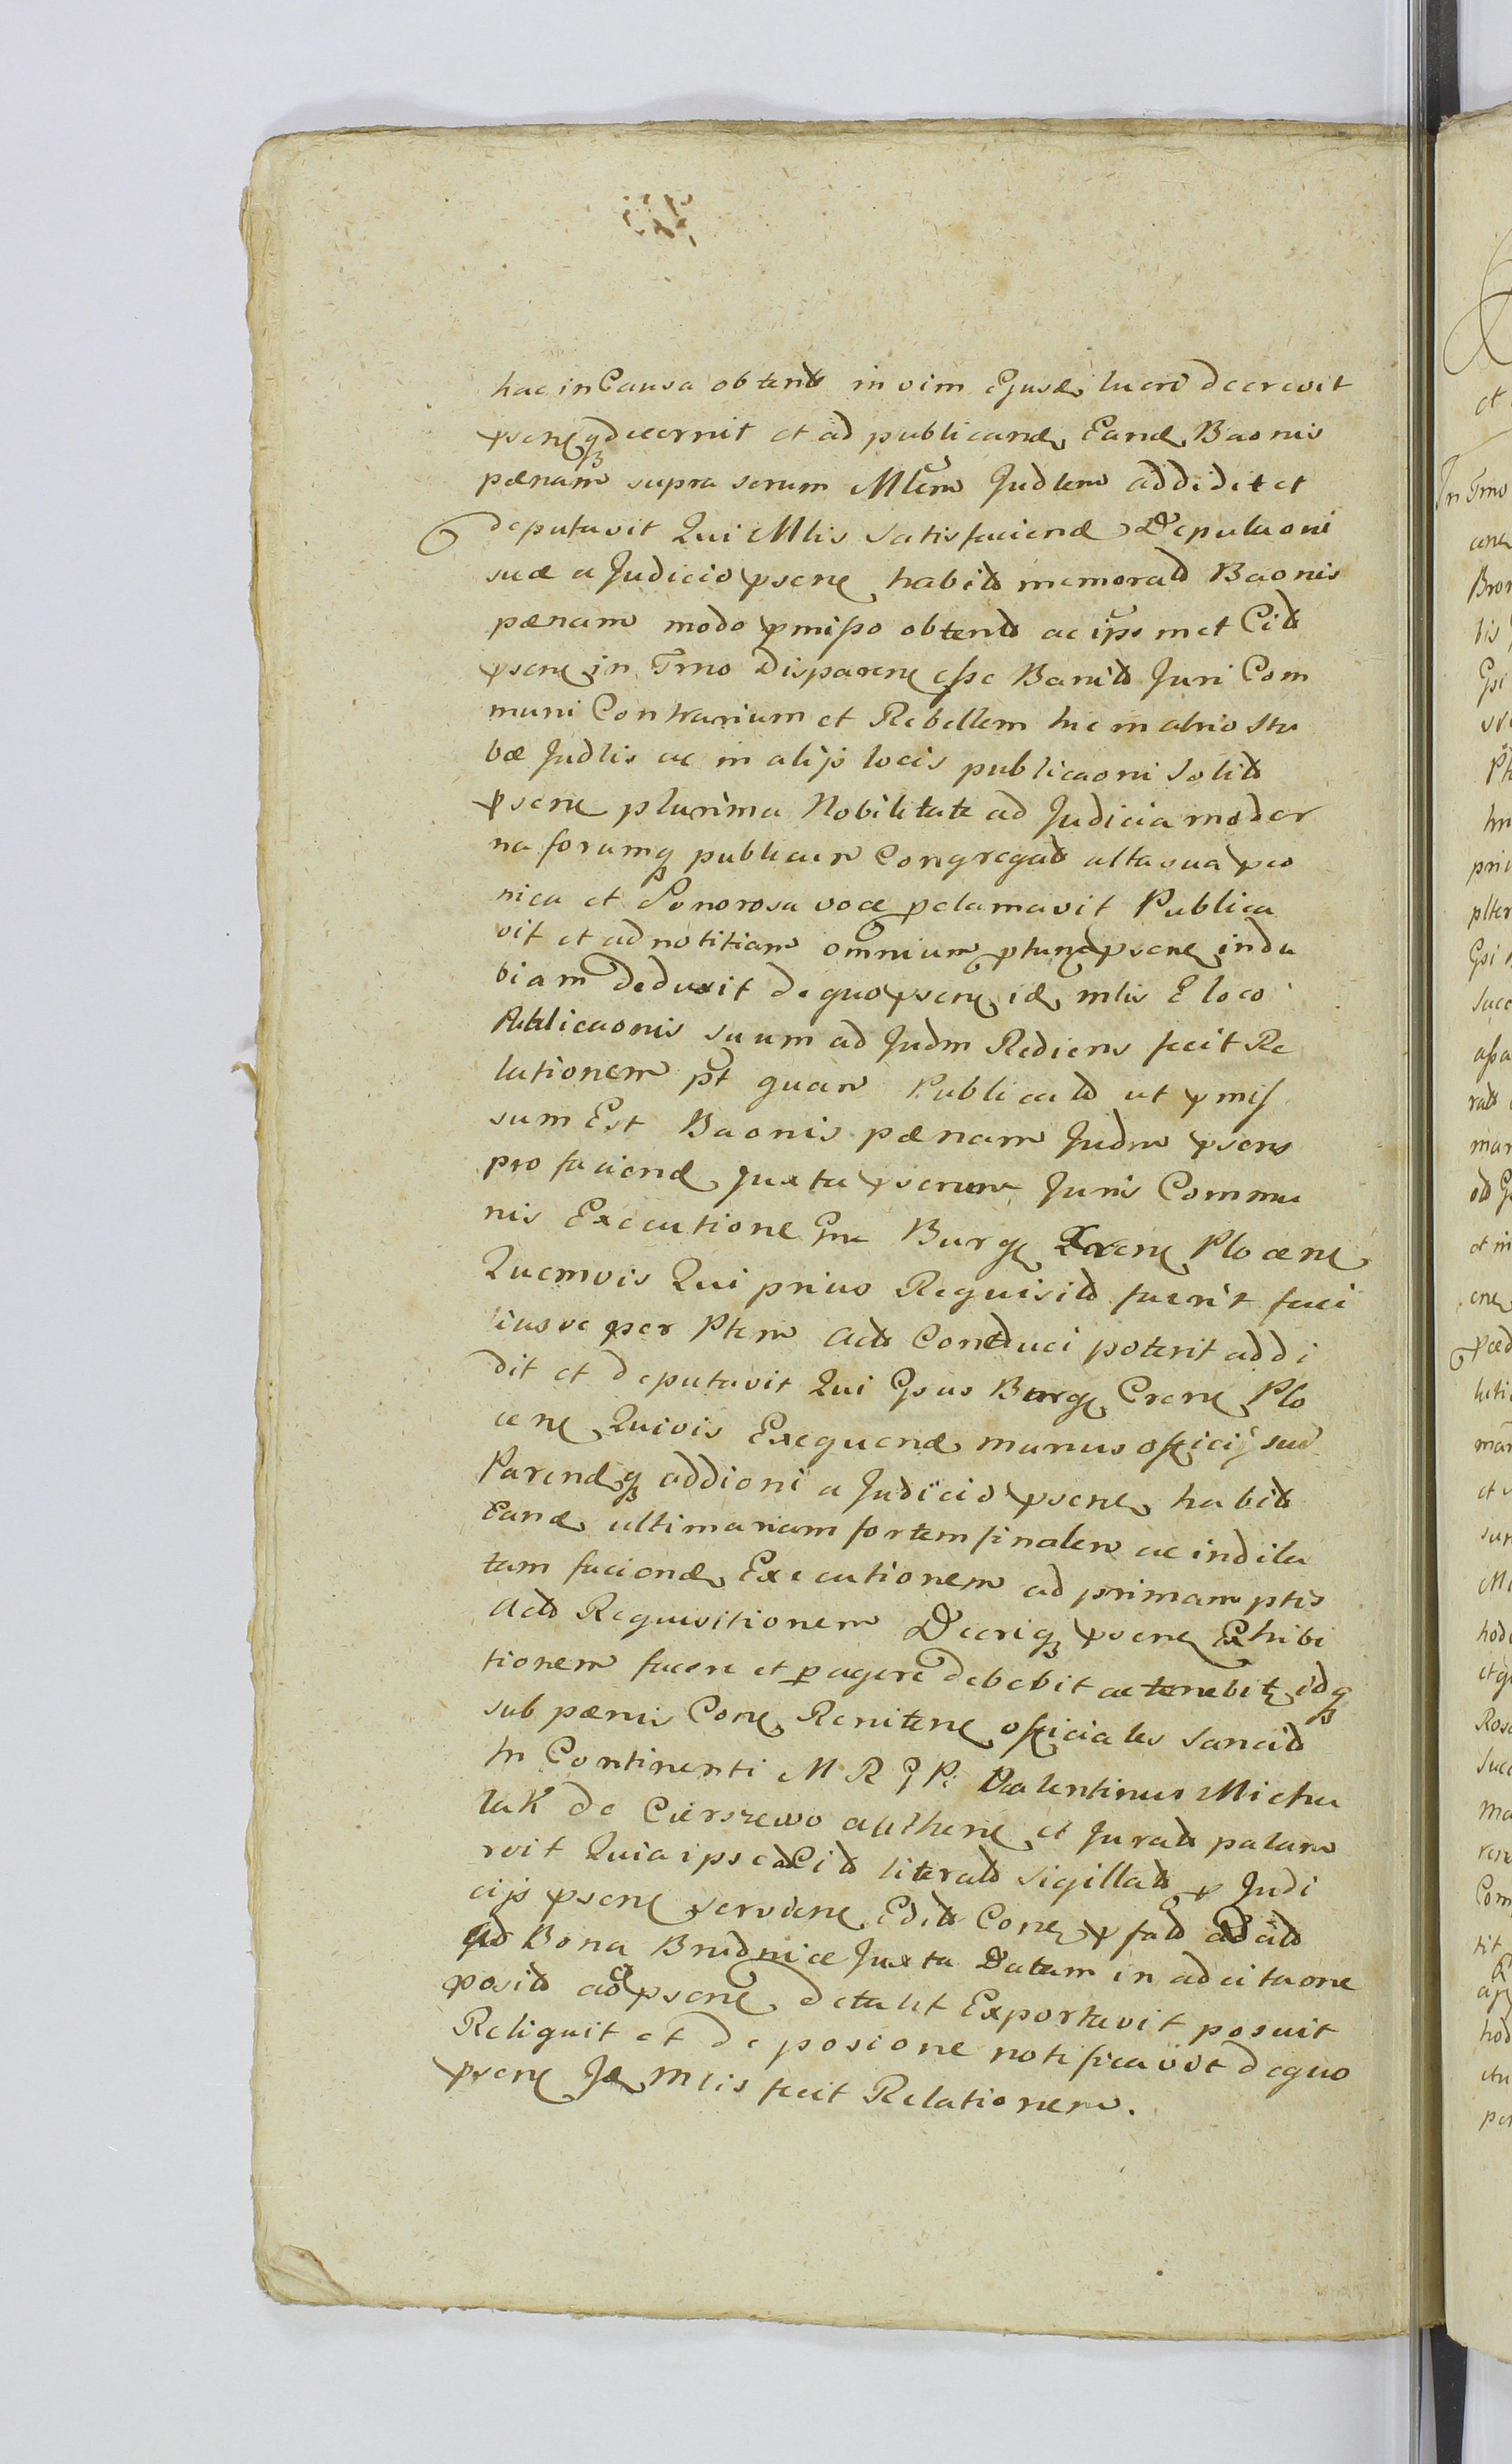 hac in Causa obtent in vim Ejusd lucri decrevit
psensq decernit et ad publicand Eand Baonis
pænam supra scrum Mlem Judlem addidit et
deputavit Qui Mlis satisfaciend Deputaoni
suæ a Judicio psen habit memorat Baonis
pænam modo pmisso obtent ac ipsmet Cit
psen in Trno Disparen esse Banit Juri Com
muni Contrarium et Rebellem hic in atrio Stu
bæ Judlis ac in alijs locis publicaoni solit
psen plurima Nobilitate ad Judicia moder
na forumq publicum Congregat alta sua pco
nica et Sonorosa voce pclamavit Publica
vit et ad notitiam omnium ptuncq psen indu
biam deduxit de quo psen id mlis E loco
Publicaonis suum ad Judm Rediens fecit Re
lationem pt quam Publicat ut pmis
sum Est Baonis pænam Judm psens
pro faciend Juxta pscrum Juris Commu
nis Executione Gne Burg Cren Plocen
Quemvis Qui prius Requisit fuerit faci
liusve per Ptem Act Conduci poterit addi
dit et deputavit Qui Gsus Burg Cren Plo
cen Quivis Exequend munus officij sui
Parendq addioni a Judicio psen habit
Eand ultimariam fortem finalem ac indila
tam faciend Executionem ad primam ptis
Act Requisitionem Decriq psen Exhibi
tionem facere et peragere debebit ac tenebit, idq
sub pænis Con Reniten officiales sancit
In Continenti M R G P: Valentinus Micha
lak de Cierszewo authen et Jurat palam
rvit Quia ipse adCit literat sigillat p Judi
cijs psen servien Edit Con pfat Adcit
ad Bona Brudnice Juxta Datam in adcitaone
posit ad psen detulit Exportavit posuit
Reliquit et de posicione notificavit de quo
psen Id Mlis fecit Relationem.